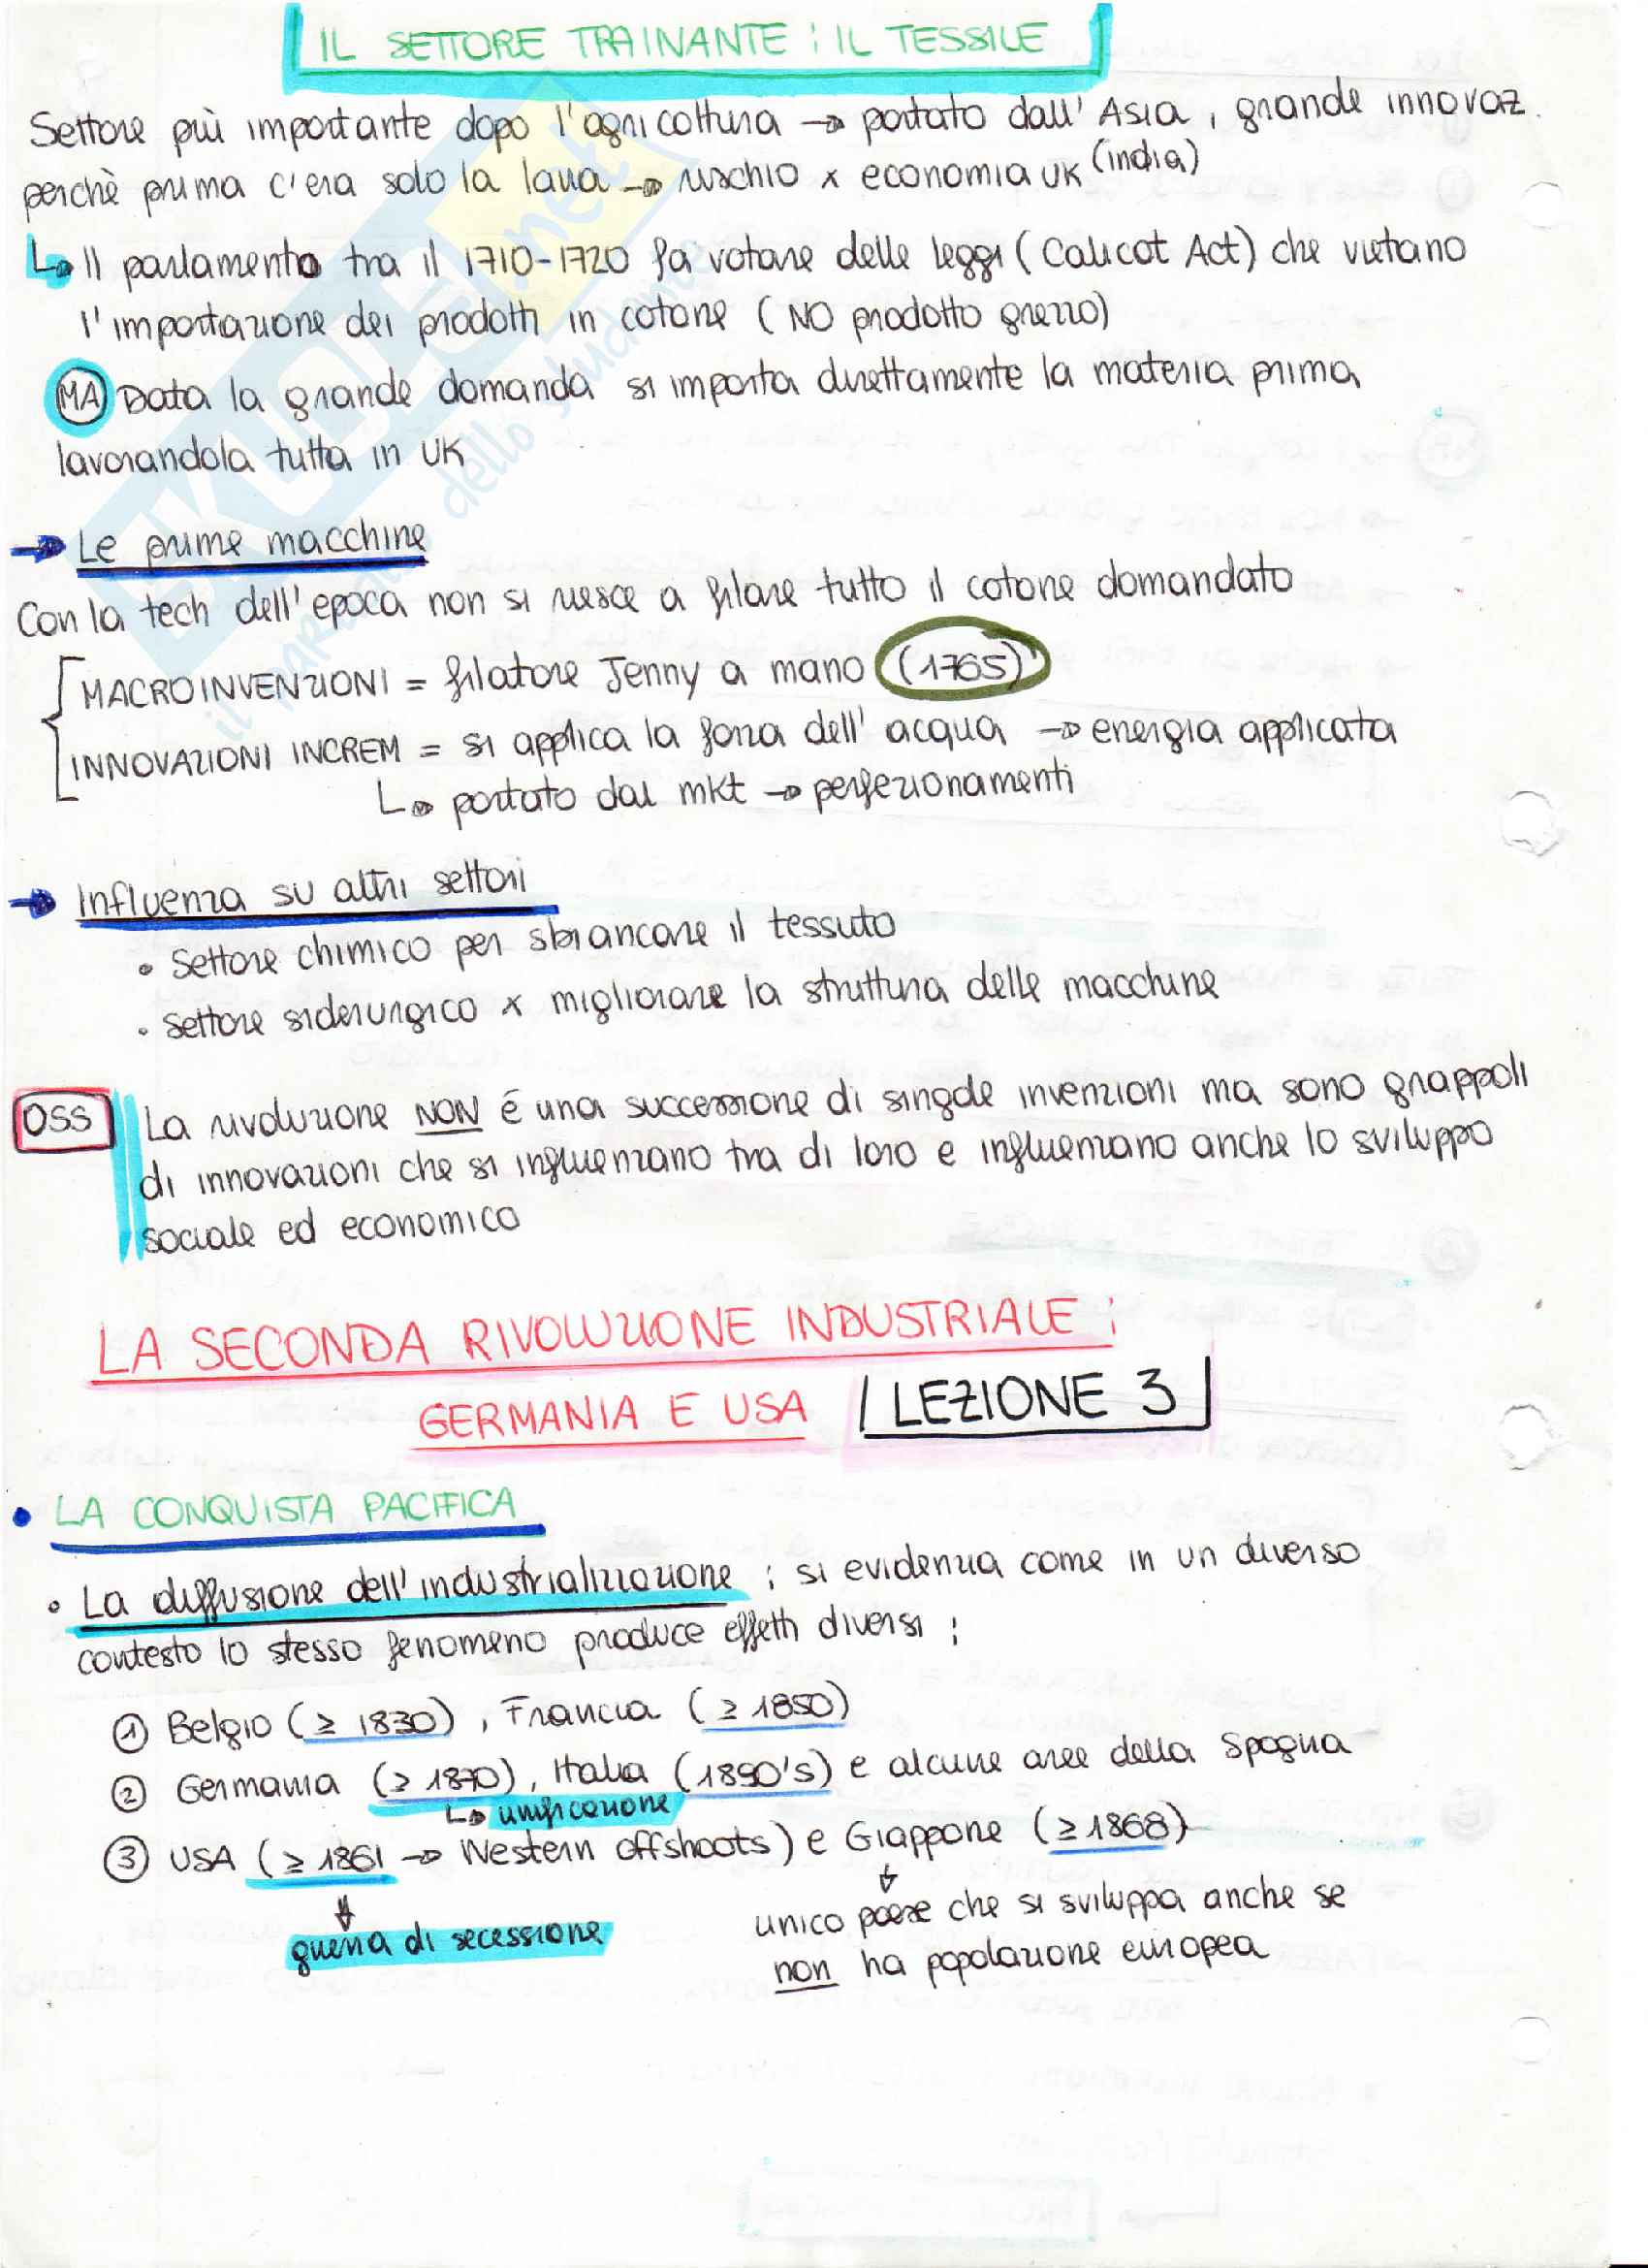 IL SETTORE TRAINANTE : IL TESSILE
Settore più importante dopo l'agricoltura → portato dall'Asia, grande innovaz.
perchè prima c'era solo la lana → rischio x economia UK (india)
↳ Il parlamento tra il 1710-1720 fa votare delle leggi (Calicot Act) che vietano
l'importazione dei prodotti in cotone (NO prodotto grezzo)
MA Data la grande domanda si importa direttamente la materia prima
lavorandola tutta in UK
→ Le prime macchine
Con la tech dell'epoca non si riesce a filare tutto il cotone domandato
MACROINVENZIONI = filatore Jenny a mano (1765)
INNOVAZIONI INCREM = si applica la forza dell'acqua → energia applicata
↳ portato dal mkt → perfezionamenti
→ Influenza su altri settori
• Settore chimico per sbiancare il tessuto
• Settore siderurgico x migliorare la struttura delle macchine
OSS La rivoluzione NON é una successione di singole invenzioni ma sono grappoli
di innovazioni che si influenzano tra di loro e influenzano anche lo sviluppo
sociale ed economico
LA SECONDA RIVOLUZIONE INDUSTRIALE :
GERMANIA E USA LEZIONE 3
• LA CONQUISTA PACIFICA
• La diffusione dell'industrializzazione : si evidenzia come in un diverso
contesto lo stesso fenomeno produce effetti diversi :
① Belgio (≥ 1830), Francia (≥ 1850)
② Germania (≥ 1870), Italia (1890's) e alcune aree della Spagna
↳ unificazione
③ USA (≥ 1861 → Western offshoots) e Giappone (≥ 1868)
↓ guerra di secessione
↓ unico paese che si sviluppa anche se
non ha popolazione europea
SKUOLA.net
il portale dello studente